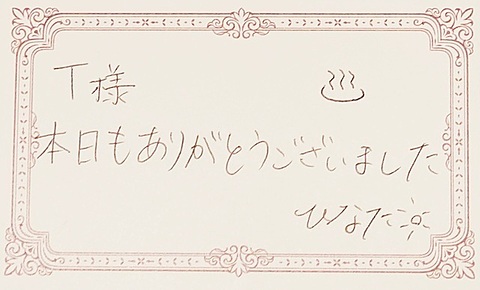 T様 ♨
本日もありがとうございました
ひなた☼